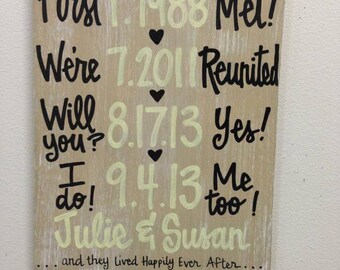 First 1.1988 Met!
We're 7.2011 Reunited
Will you? 8.17.13 Yes!
I do! 9.4.13 Me too!
Julie & Susan
...and they Lived Happily Ever After...